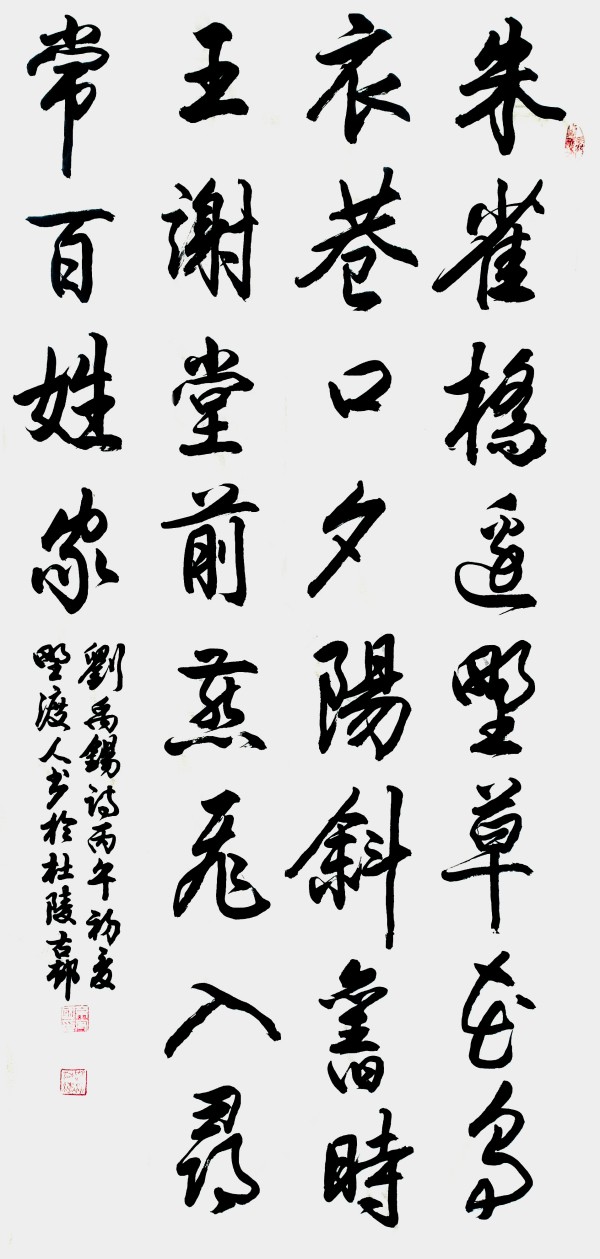 朱雀橋邊野草花烏
衣巷口夕陽斜舊時
王謝堂前燕飛入尋
常百姓家
劉禹錫詩丙午初夏
野渡人书於杜陵古邨